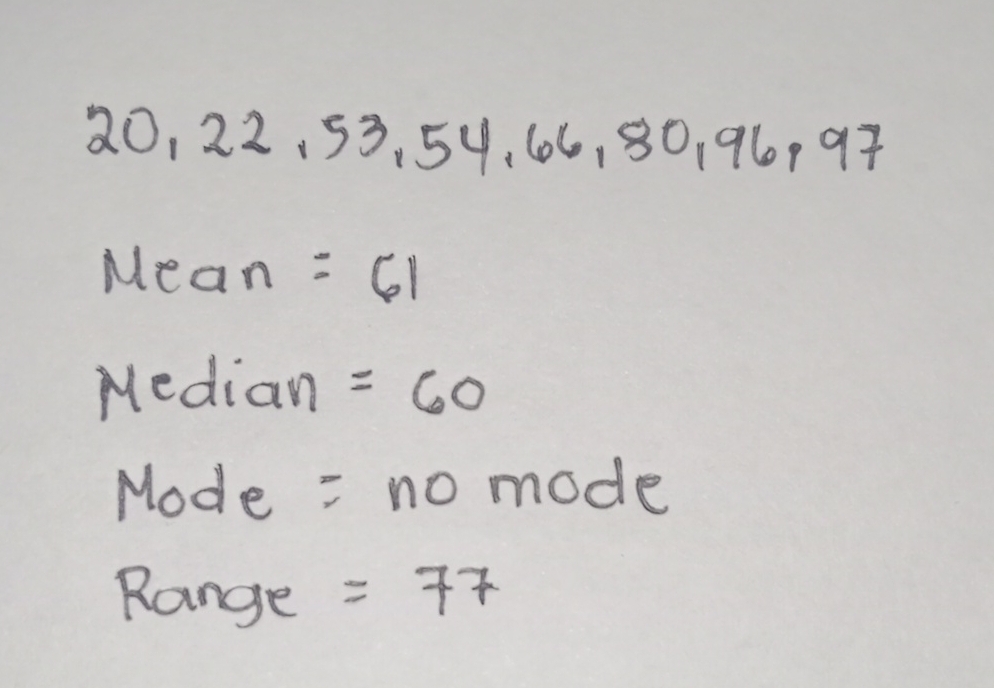 20, 22, 53, 54, 66, 80, 96, 97
Mean = 61
Median = 60
Mode = no mode
Range = 77